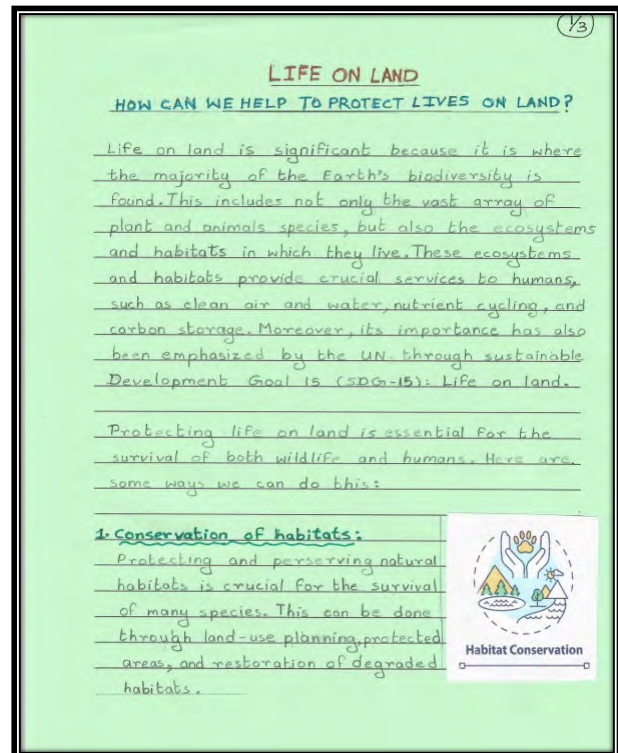 1/3
LIFE ON LAND
HOW CAN WE HELP TO PROTECT LIVES ON LAND?
Life on land is significant because it is where
the majority of the Earth's biodiversity is
found. This includes not only the vast array of
plant and animals species, but also the ecosystems
and habitats in which they live. These ecosystems
and habitats provide crucial services to humans,
such as clean air and water, nutrient cycling, and
carbon storage. Moreover, its importance has also
been emphasized by the UN through sustainable
Development Goal 15 (SDG-15): Life on land.
Protecting life on land is essential for the
survival of both wildlife and humans. Here are
some ways we can do this:
1. Conservation of habitats:
Protecting and perserving natural
habitats is crucial for the survival
of many species. This can be done
through land-use planning, protected
areas, and restoration of degraded
habitats.
Habitat Conservation